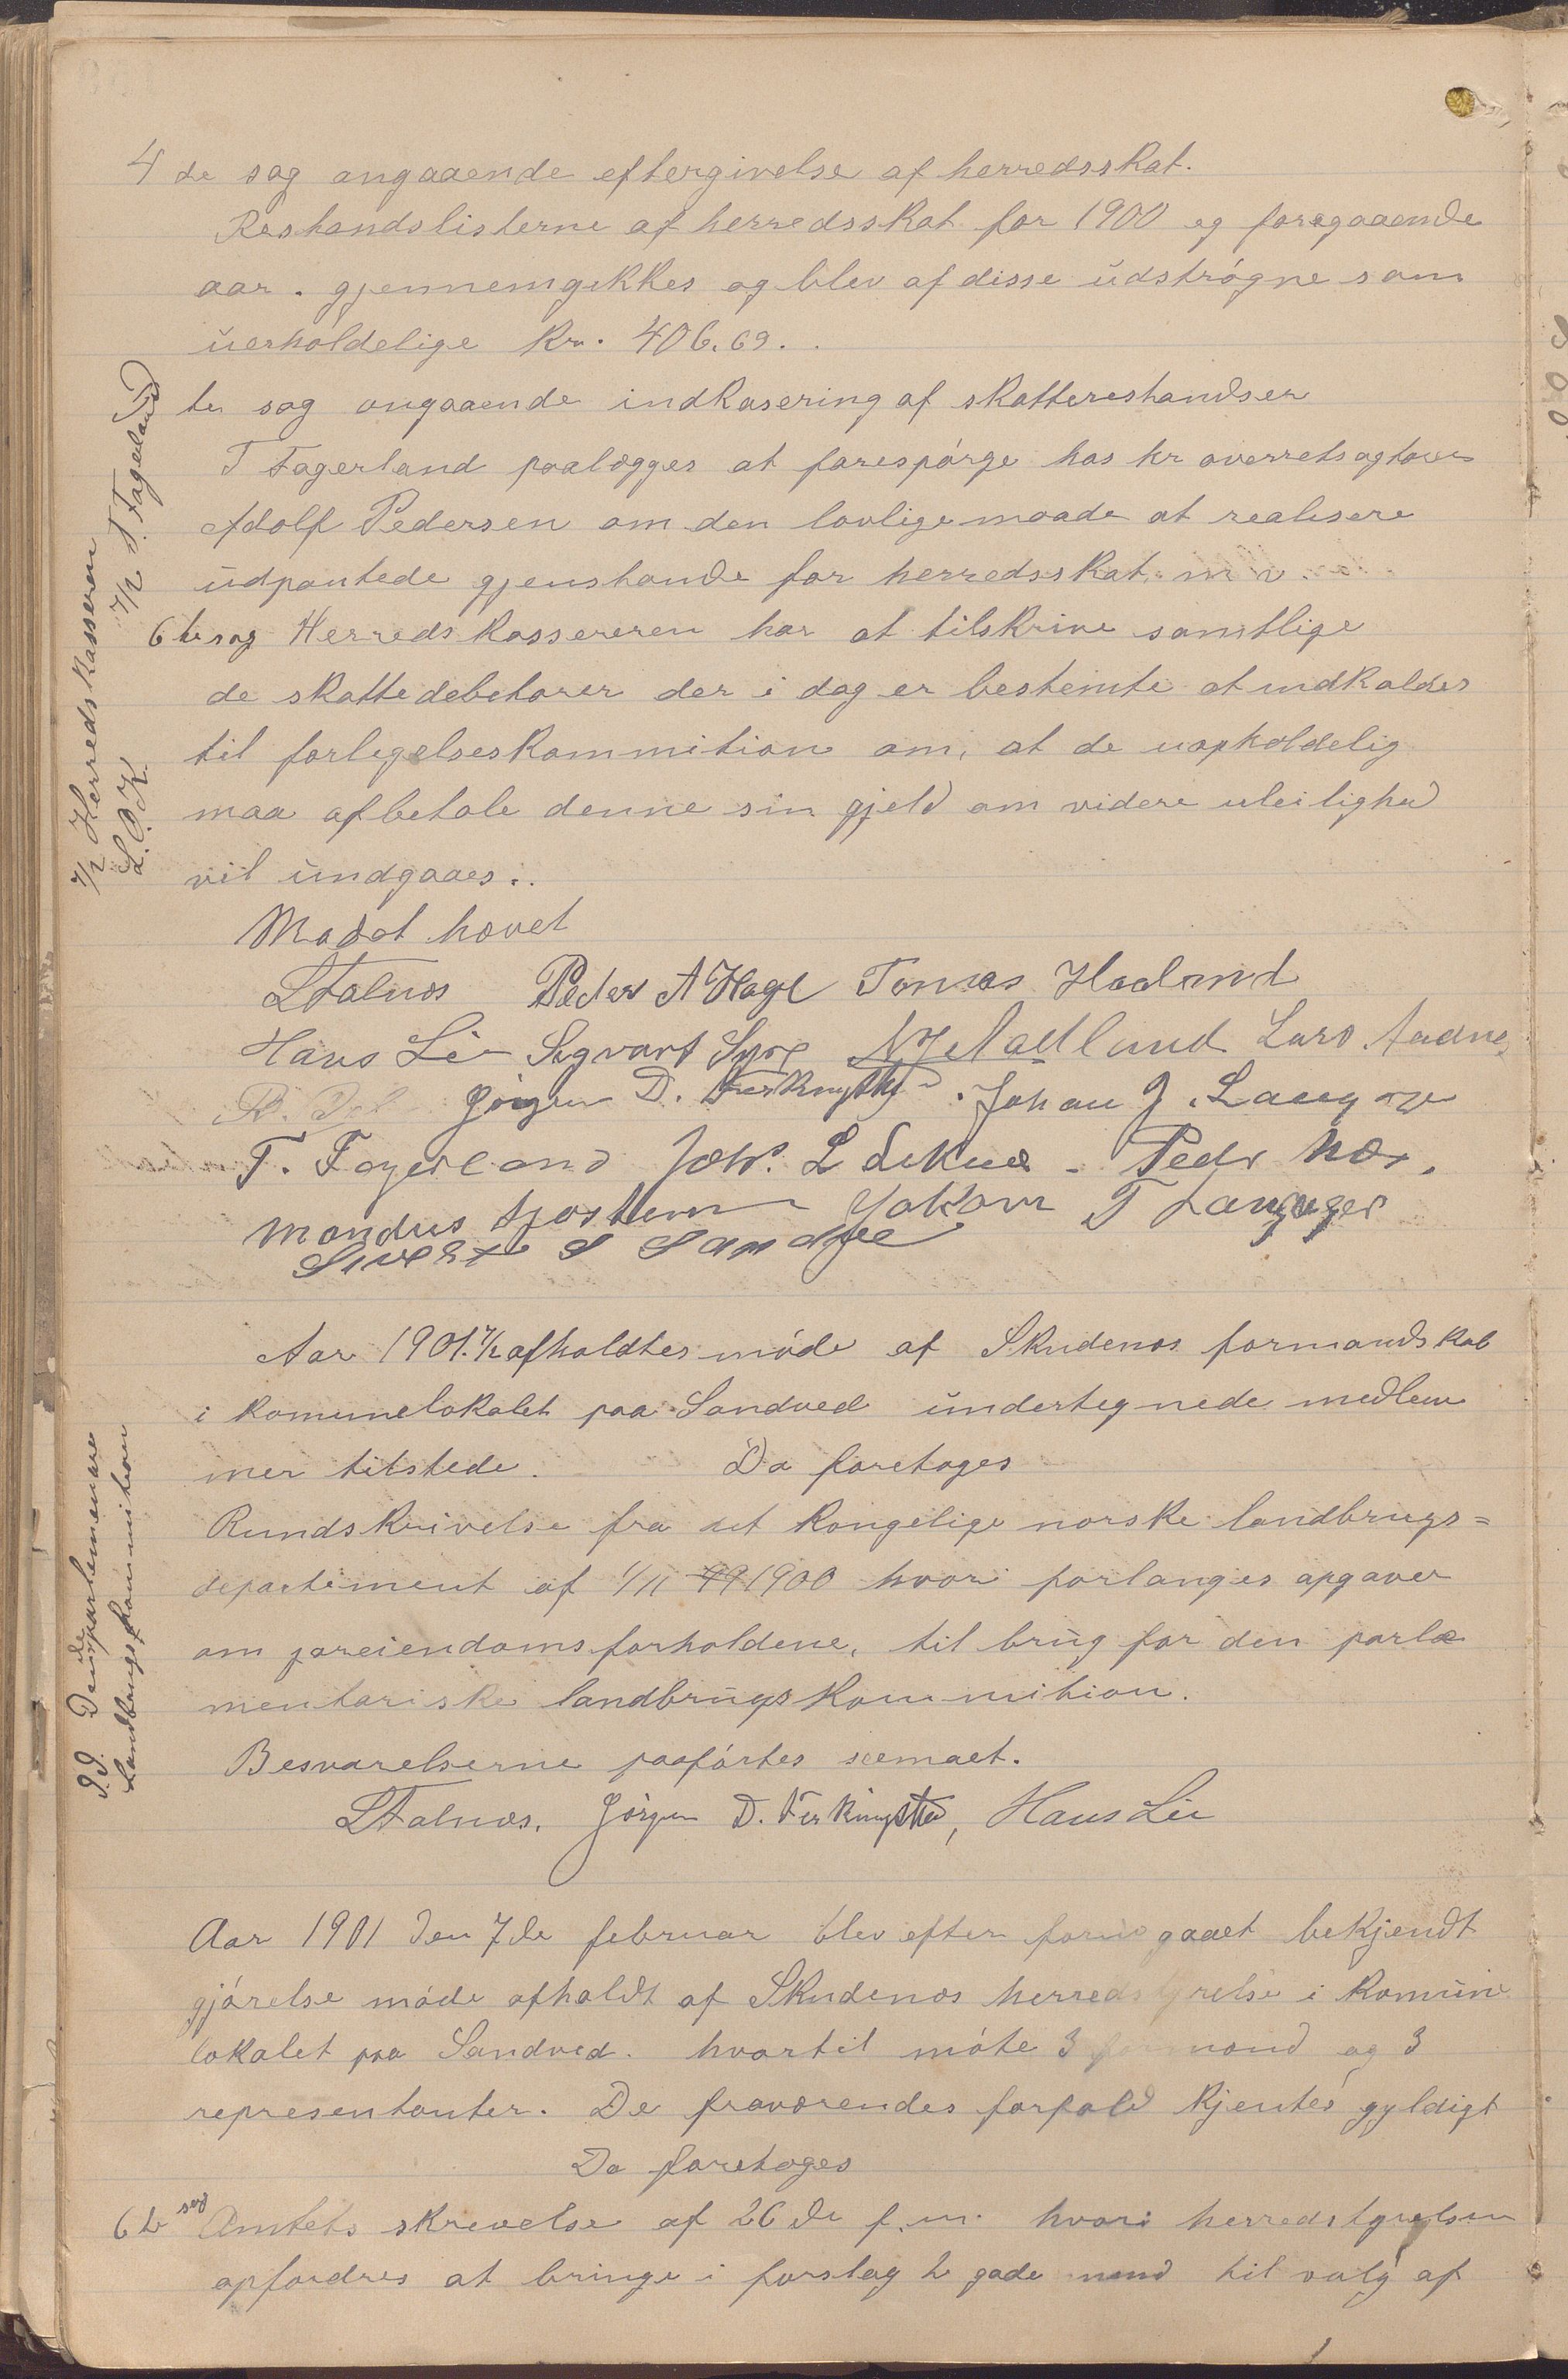 4 de sag angaaende eftergivelse af herredsskat.
Restandslisterne af herredsskat for 1900 og foregaaende
aar. gjennemgikkes og blev af disse udstrøgne som
uerholdelige Kr. 406.69.
5 te sag angaaende indkasering af skatterestandser
T Fagerland paalægges at forespørge hos hr overretsagfører
Adolf Pedersen om den lovlige maade at realisere
udpantede gjenstande for herredsskat m v.
7/2 T. Fagerland
6 te sag Herredskassereren har at tilskrive samtlige
de skattedebetorer der i dag er bestemte at indkaldes
til forligelseskommition om, at de uopholdelig
maa afbetale denne sin gjeld om videre uleilighed
vil undgaaes.
7/2 Herredskasseren
L.F.K.
Mødet hævet
L Falnes Peder A Hage Tomas Haaland
Hans Lie Sigvart Syre N J Aadland Lars Aadnes
Jørgen D. Ferkingsta Johan J. Langage
T. Fagerland Joh. L Liknes Peder Næs.
Mandus Tjøstem Jakom T Langager
Sivert S Sandve
Aar 1901. 7/2 afholdtes møde af Skudenæs formandskab
i komunelokalet paa Sandved undertegnede medlem
mer tilstede. Da foretoges
Rundskrivelse fra det kongelige norske landbrugs=
departement af 1/11 99 1900 hvori forlanges opgaver
om joreiendomsforholdene, til brug for den parla
mentariske landbrugskommition.
Besvarelserne paaførtes scemaet.
D.D. Den parlementare
Landbrugskommitionen
L Falnes. Jørgen D. Ferkingsta, Hans Lie
Aar 1901 den 7de februar blev efter forudgaaet bekjendt
gjørelse møde afholdt af Skudenæs herredstyrelse i komune
lokalet paa Sandved. hvortil møte 3 formænd og 3
representanter. De fraværendes forfald kjentes gyldigt
Da foretoges
6 te sag Amtets skrevelse af 26 de f.m. hvori herredstyrelsen
opfordres at bringe i forslag 2 gode mænd til valg af